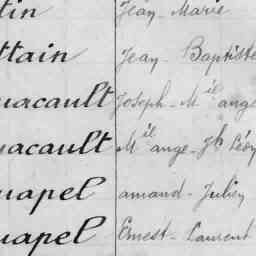 tin Jean-Marie
ttain Jean-Baptiste
uacault Joseph-M^el ange
uacault M^el ange-J^h Léon
uapel amand-Julien
uapel Ernest-Laurent